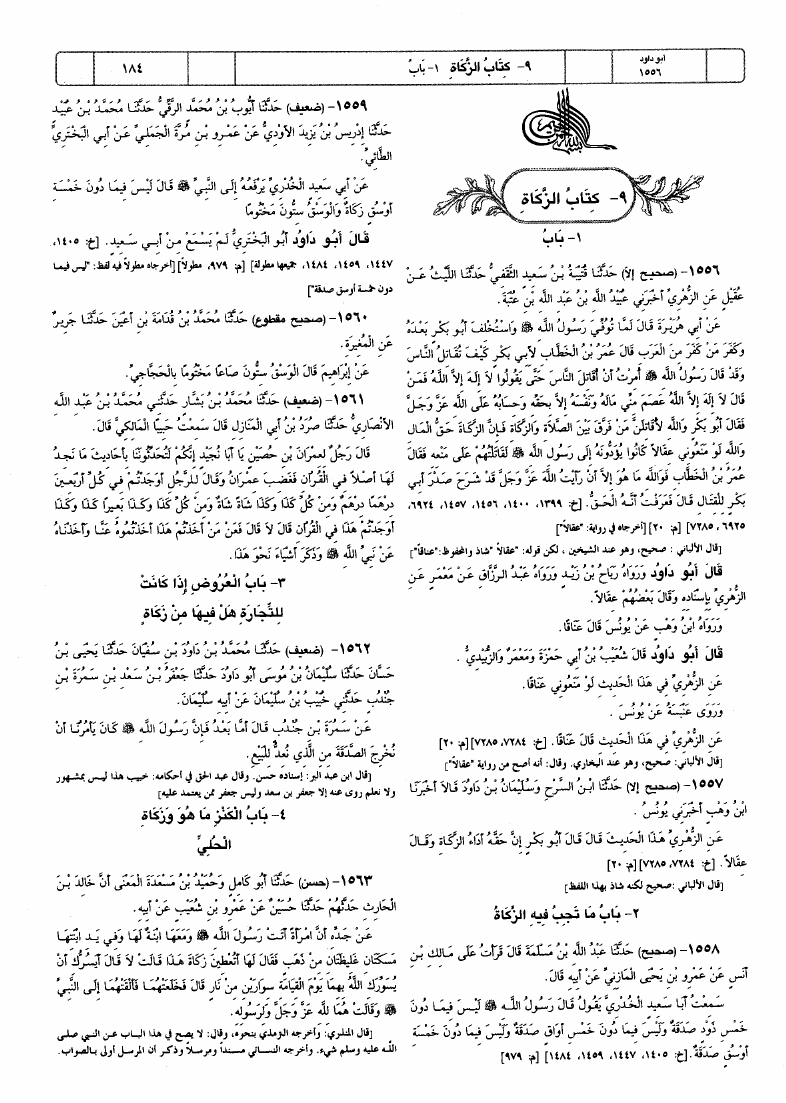 ابو داود
١٥٥٦
٩- كِتَابُ الزَّكَاةِ ١- بَابُ
١٨٤
بسم الله الرحمن الرحيم
٩- كِتَابُ الزَّكَاةِ
١- بَابُ
١٥٥٦- (صحيح إلا) حَدَّثَنَا قُتَيْبَةُ بْنُ سَعِيدٍ الثَّقَفِيُّ حَدَّثَنَا اللَّيْثُ عَنْ
عُقَيْلٍ عَنِ الزُّهْرِيِّ أَخْبَرَنِي عُبَيْدُ اللَّهِ بْنُ عَبْدِ اللَّهِ بْنِ عُتْبَةَ.
عَنْ أَبِي هُرَيْرَةَ قَالَ لَمَّا تُوُفِّيَ رَسُولُ اللَّهِ ﷺ وَاسْتُخْلِفَ أَبُو بَكْرٍ بَعْدَهُ
وَكَفَرَ مَنْ كَفَرَ مِنَ الْعَرَبِ قَالَ عُمَرُ بْنُ الْخَطَّابِ لأَبِي بَكْرٍ كَيْفَ تُقَاتِلُ النَّاسَ
وَقَدْ قَالَ رَسُولُ اللَّهِ ﷺ أُمِرْتُ أَنْ أُقَاتِلَ النَّاسَ حَتَّى يَقُولُوا لاَ إِلَهَ إِلاَّ اللَّهُ فَمَنْ
قَالَ لاَ إِلَهَ إِلاَّ اللَّهُ عَصَمَ مِنِّي مَالَهُ وَنَفْسَهُ إِلاَّ بِحَقِّهِ وَحِسَابُهُ عَلَى اللَّهِ عَزَّ وَجَلَّ
فَقَالَ أَبُو بَكْرٍ وَاللَّهِ لأُقَاتِلَنَّ مَنْ فَرَّقَ بَيْنَ الصَّلاَةِ وَالزَّكَاةِ فَإِنَّ الزَّكَاةَ حَقُّ الْمَالِ
وَاللَّهِ لَوْ مَنَعُونِي عِقَالاً كَانُوا يُؤَدُّونَهُ إِلَى رَسُولِ اللَّهِ ﷺ لَقَاتَلْتُهُمْ عَلَى مَنْعِهِ فَقَالَ
عُمَرُ بْنُ الْخَطَّابِ فَوَاللَّهِ مَا هُوَ إِلاَّ أَنْ رَأَيْتُ اللَّهَ عَزَّ وَجَلَّ قَدْ شَرَحَ صَدْرَ أَبِي
بَكْرٍ لِلْقِتَالِ قَالَ فَعَرَفْتُ أَنَّهُ الْحَقُّ. [خ: ١٣٩٩، ١٤٠٠، ١٤٥٦، ١٤٥٧، ٦٩٢٤،
٦٩٢٥، ٧٢٨٥] [م: ٢٠] [أخرجاه في رواية: "عقالاً"]
[قال الألباني : صحيح، وهو عند الشيخين ، لكن قوله: "عقالاً" شاذ والمحفوظ:"عناقاً"]
قَالَ أَبُو دَاوُد وَرَوَاهُ رَبَاحُ بْنُ زَيْدٍ وَرَوَاهُ عَبْدُ الرَّزَّاقِ عَنْ مَعْمَرٍ عَنِ
الزُّهْرِيِّ بِإِسْنَادِهِ وَقَالَ بَعْضُهُمْ عِقَالاً.
وَرَوَاهُ ابْنُ وَهْبٍ عَنْ يُونُسَ قَالَ عَنَاقًا.
قَالَ أَبُو دَاوُد قَالَ شُعَيْبُ بْنُ أَبِي حَمْزَةَ وَمَعْمَرٌ وَالزُّبَيْدِيُّ .
عَنِ الزُّهْرِيِّ فِي هَذَا الْحَدِيثِ لَوْ مَنَعُونِي عَنَاقًا.
وَرَوَى عَنْبَسَةُ عَنْ يُونُسَ .
عَنِ الزُّهْرِيِّ فِي هَذَا الْحَدِيثِ قَالَ عَنَاقًا. [خ: ٧٢٨٤، ٧٢٨٥] [م: ٢٠]
[قال الألباني: صحيح، وهو عند البخاري. وقال: أنه أصح من رواية "عقالاً"]
١٥٥٧- (صحيح إلا) حَدَّثَنَا ابْنُ السَّرْحِ وَسُلَيْمَانُ بْنُ دَاوُدَ قَالاَ أَخْبَرَنَا
ابْنُ وَهْبٍ أَخْبَرَنِي يُونُسُ .
عَنِ الزُّهْرِيِّ هَذَا الْحَدِيثَ قَالَ قَالَ أَبُو بَكْرٍ إِنَّ حَقَّهُ أَدَاءُ الزَّكَاةِ وَقَالَ
عِقَالاً. [خ: ٧٢٨٤، ٧٢٨٥] [م: ٢٠]
[قال الألباني :صحيح لكنه شاذ بهذا اللفظ]
٢- بَابُ مَا تَجِبُ فِيهِ الزَّكَاةُ
١٥٥٨- (صحيح) حَدَّثَنَا عَبْدُ اللَّهِ بْنُ مَسْلَمَةَ قَالَ قَرَأْتُ عَلَى مَالِكِ بْنِ
أَنَسٍ عَنْ عَمْرِو بْنِ يَحْيَى الْمَازِنِيِّ عَنْ أَبِيهِ قَالَ.
سَمِعْتُ أَبَا سَعِيدٍ الْخُدْرِيَّ يَقُولُ قَالَ رَسُولُ اللَّهِ ﷺ لَيْسَ فِيمَا دُونَ
خَمْسِ ذَوْدٍ صَدَقَةٌ وَلَيْسَ فِيمَا دُونَ خَمْسِ أَوَاقٍ صَدَقَةٌ وَلَيْسَ فِيمَا دُونَ خَمْسَةِ
أَوْسُقٍ صَدَقَةٌ. [خ: ١٤٠٥، ١٤٤٧، ١٤٥٩، ١٤٨٤] [م: ٩٧٩]
١٥٥٩- (ضعيف) حَدَّثَنَا أَيُّوبُ بْنُ مُحَمَّدٍ الرَّقِّيُّ حَدَّثَنَا مُحَمَّدُ بْنُ عُبَيْدٍ
حَدَّثَنَا إِدْرِيسُ بْنُ يَزِيدَ الأَوْدِيُّ عَنْ عَمْرِو بْنِ مُرَّةَ الْجَمَلِيِّ عَنْ أَبِي الْبَخْتَرِيِّ
الطَّائِيِّ.
عَنْ أَبِي سَعِيدٍ الْخُدْرِيِّ يَرْفَعُهُ إِلَى النَّبِيِّ ﷺ قَالَ لَيْسَ فِيمَا دُونَ خَمْسَةِ
أَوْسُقٍ زَكَاةٌ وَالْوَسْقُ سِتُّونَ مَخْتُومًا
قَالَ أَبُو دَاوُد أَبُو الْبَخْتَرِيِّ لَمْ يَسْمَعْ مِنْ أَبِي سَعِيدٍ. [خ: ١٤٠٥،
١٤٤٧، ١٤٥٩، ١٤٨٤، جميعها مطولة] [م: ٩٧٩، مطولاً] [أخرجاه مطولاً فيه لفظ: "ليس فيما
دون خمسة أوسق صدقة"]
١٥٦٠- (صحيح مقطوع) حَدَّثَنَا مُحَمَّدُ بْنُ قُدَامَةَ بْنِ أَعْيَنَ حَدَّثَنَا جَرِيرٌ
عَنِ الْمُغِيرَةِ.
عَنْ إِبْرَاهِيمَ قَالَ الْوَسْقُ سِتُّونَ صَاعًا مَخْتُومًا بِالْحَجَّاجِيِّ.
١٥٦١- (ضعيف) حَدَّثَنَا مُحَمَّدُ بْنُ بَشَّارٍ حَدَّثَنِي مُحَمَّدُ بْنُ عَبْدِ اللَّهِ
الأَنْصَارِيُّ حَدَّثَنَا صُرَدُ بْنُ أَبِي الْمَنَازِلِ قَالَ سَمِعْتُ حَبِيبًا الْمَالِكِيَّ قَالَ.
قَالَ رَجُلٌ لِعِمْرَانَ بْنِ حُصَيْنٍ يَا أَبَا نُجَيْدٍ إِنَّكُمْ لَتُحَدِّثُونَنَا بِأَحَادِيثَ مَا نَجِدُ
لَهَا أَصْلاً فِي الْقُرْآنِ فَغَضِبَ عِمْرَانُ وَقَالَ لِلرَّجُلِ أَوَجَدْتُمْ فِي كُلِّ أَرْبَعِينَ
دِرْهَمًا دِرْهَمٌ وَمِنْ كُلِّ كَذَا وَكَذَا شَاةً شَاةٌ وَمِنْ كُلِّ كَذَا وَكَذَا بَعِيرًا كَذَا وَكَذَا
أَوَجَدْتُمْ هَذَا فِي الْقُرْآنِ قَالَ لاَ قَالَ فَعَنْ مَنْ أَخَذْتُمْ هَذَا أَخَذْتُمُوهُ عَنَّا وَأَخَذْنَاهُ
عَنْ نَبِيِّ اللَّهِ ﷺ وَذَكَرَ أَشْيَاءَ نَحْوَ هَذَا.
٣- بَابُ الْعُرُوضِ إِذَا كَانَتْ
لِلتِّجَارَةِ هَلْ فِيهَا مِنْ زَكَاةٍ
١٥٦٢- (ضعيف) حَدَّثَنَا مُحَمَّدُ بْنُ دَاوُدَ بْنِ سُفْيَانَ حَدَّثَنَا يَحْيَى بْنُ
حَسَّانَ حَدَّثَنَا سُلَيْمَانُ بْنُ مُوسَى أَبُو دَاوُدَ حَدَّثَنَا جَعْفَرُ بْنُ سَعْدِ بْنِ سَمُرَةَ بْنِ
جُنْدُبٍ حَدَّثَنِي خُبَيْبُ بْنُ سُلَيْمَانَ عَنْ أَبِيهِ سُلَيْمَانَ.
عَنْ سَمُرَةَ بْنِ جُنْدُبٍ قَالَ أَمَّا بَعْدُ فَإِنَّ رَسُولَ اللَّهِ ﷺ كَانَ يَأْمُرُنَا أَنْ
نُخْرِجَ الصَّدَقَةَ مِنَ الَّذِي نُعِدُّ لِلْبَيْعِ.
[قال ابن عبد البر: إسناده حسن. وقال عبد الحق في أحكامه: خبيب هذا ليس بمشهور
ولا نعلم روى عنه إلا جعفر بن سعد وليس جعفر ممن يعتمد عليه]
٤- بَابُ الْكَنْزِ مَا هُوَ وَزَكَاةِ
الْحُلِيِّ
١٥٦٣- (حسن) حَدَّثَنَا أَبُو كَامِلٍ وَحُمَيْدُ بْنُ مَسْعَدَةَ الْمَعْنَى أَنَّ خَالِدَ بْنَ
الْحَارِثِ حَدَّثَهُمْ حَدَّثَنَا حُسَيْنٌ عَنْ عَمْرِو بْنِ شُعَيْبٍ عَنْ أَبِيهِ.
عَنْ جَدِّهِ أَنَّ امْرَأَةً أَتَتْ رَسُولَ اللَّهِ ﷺ وَمَعَهَا ابْنَةٌ لَهَا وَفِي يَدِ ابْنَتِهَا
مَسَكَتَانِ غَلِيظَتَانِ مِنْ ذَهَبٍ فَقَالَ لَهَا أَتُعْطِينَ زَكَاةَ هَذَا قَالَتْ لاَ قَالَ أَيَسُرُّكِ أَنْ
يُسَوِّرَكِ اللَّهُ بِهِمَا يَوْمَ الْقِيَامَةِ سِوَارَيْنِ مِنْ نَارٍ قَالَ فَخَلَعَتْهُمَا فَأَلْقَتْهُمَا إِلَى النَّبِيِّ
ﷺ وَقَالَتْ هُمَا لِلَّهِ عَزَّ وَجَلَّ وَلِرَسُولِهِ.
[قال المنذري: وأخرجه الترمذي بنحوه، وقال: لا يصح في هذا الباب عن النبي صلى
الله عليه وسلم شيء. وأخرجه النسائي مسنداً ومرسلاً وذكر أن المرسل أولى بالصواب.